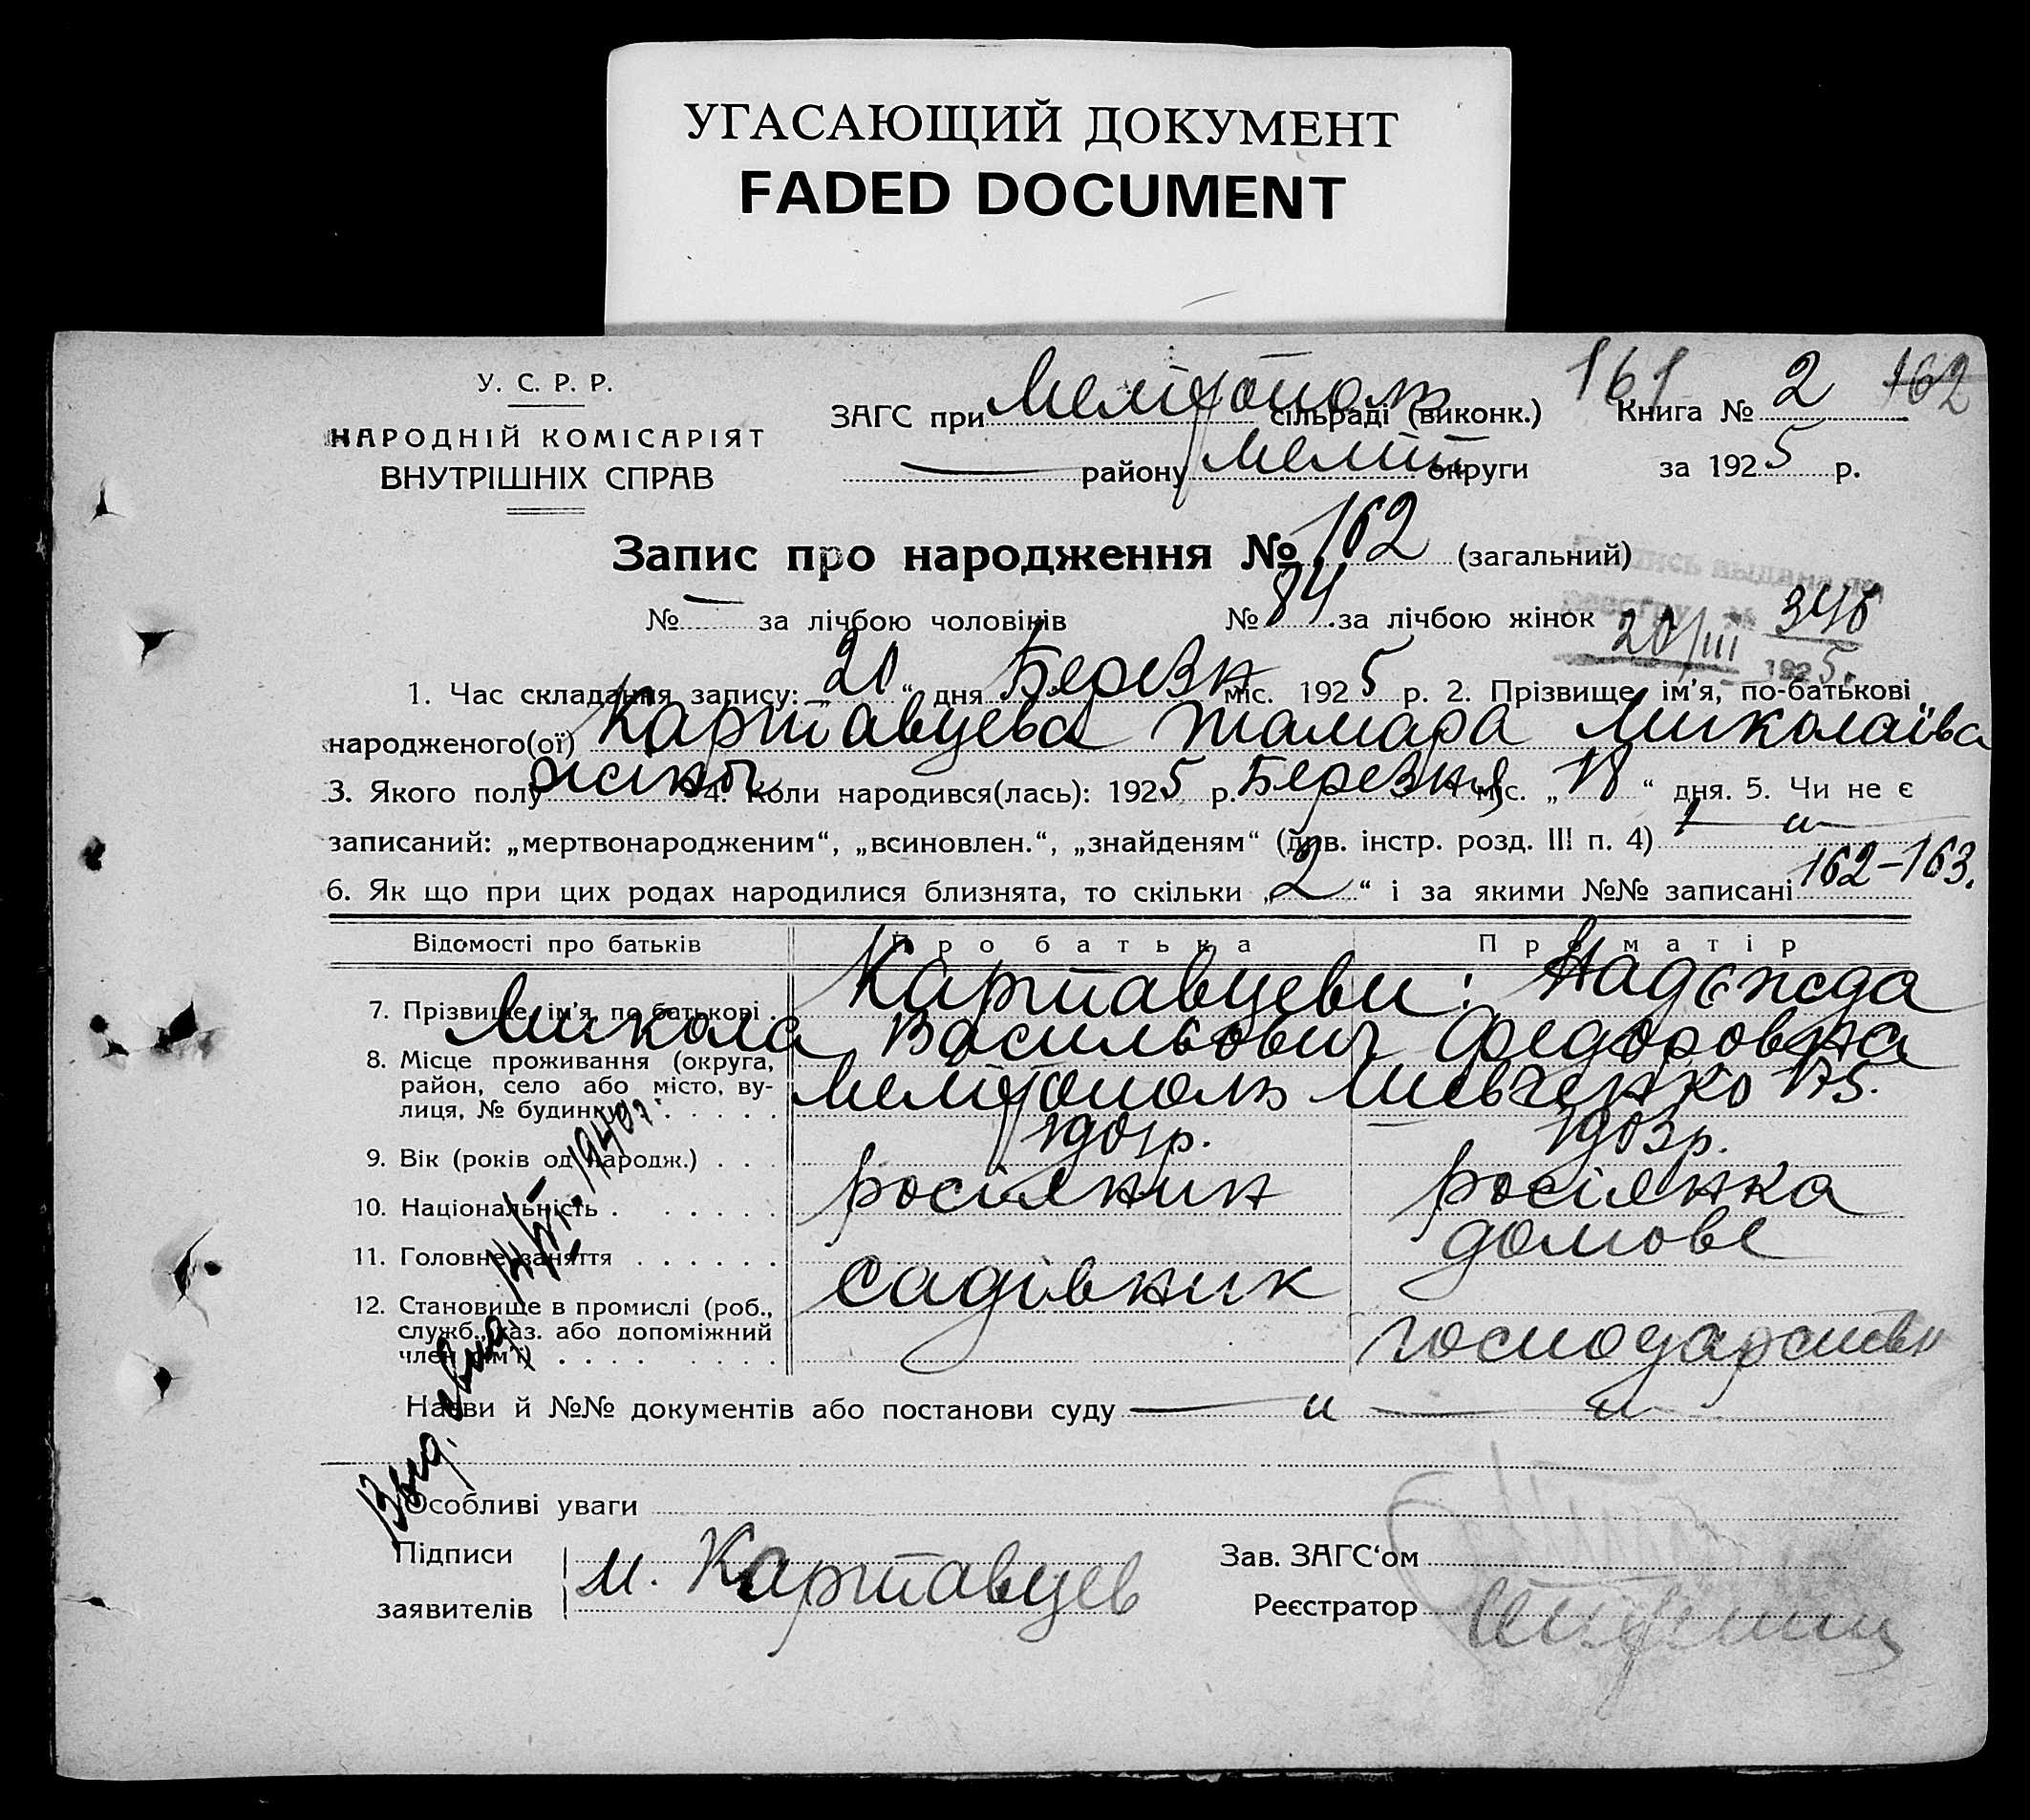 УГАСАЮЩИЙ ДОКУМЕНТ
FADED DOCUMENT
161 162
У. С. Р. Р.
НАРОДНІЙ КОМІСАРІЯТ
ВНУТРІШНІХ СПРАВ
ЗАГС при Мелітополь сільраді (виконк.) Книга № 2
— району Меліт округи за 1925 р.
Запис про народження № 162 (загальний)
№ — за лічбою чоловіків № 84 за лічбою жінок
выдана по
реестру № 348
20/III 1925 г.
1. Час складання запису: „20“ дня Березн міс. 1925 р. 2. Прізвище, ім'я, по-батькові
народженого(ої) Картавцева Тамара Миколаївa
3. Якого полу жіноч 4. Коли народився(лась): 1925 р. Березня міс. „18“ дня. 5. Чи не є
записаний: „мертвонародженим“, „всиновлен.“, „знайденям“ (див. інстр. розд. III п. 4) — „ —
6. Як що при цих родах народилися близнята, то скільки „2“ і за якими №№ записані 162-163.
Відомості про батьків Про батька Про матір
7. Прізвище, ім'я, по-батькові . Картавцеви: Надежда
Микола Васильович Федоровна
8. Місце проживання (округа,
район, село або місто, ву-
лиця, № будинку) . . . . . Мелітополь Шевченко 175.
9. Вік (років од народж.) . . . 1901р. 1903р.
10. Національність . . . . . . росіянин росіянка
11. Головне заняття . . . . . . садівник домове
12. Становище в промислі (роб.,
служб., хаз. або допоміжний
член сім'ї) . . . . . . . . . господарств
Назви й №№ документів або постанови суду — „ — „
Особливі уваги
Выд. 1940г.
Підписи
заявителів М. Картавцев
Зав. ЗАГС‘ом
Реєстратор